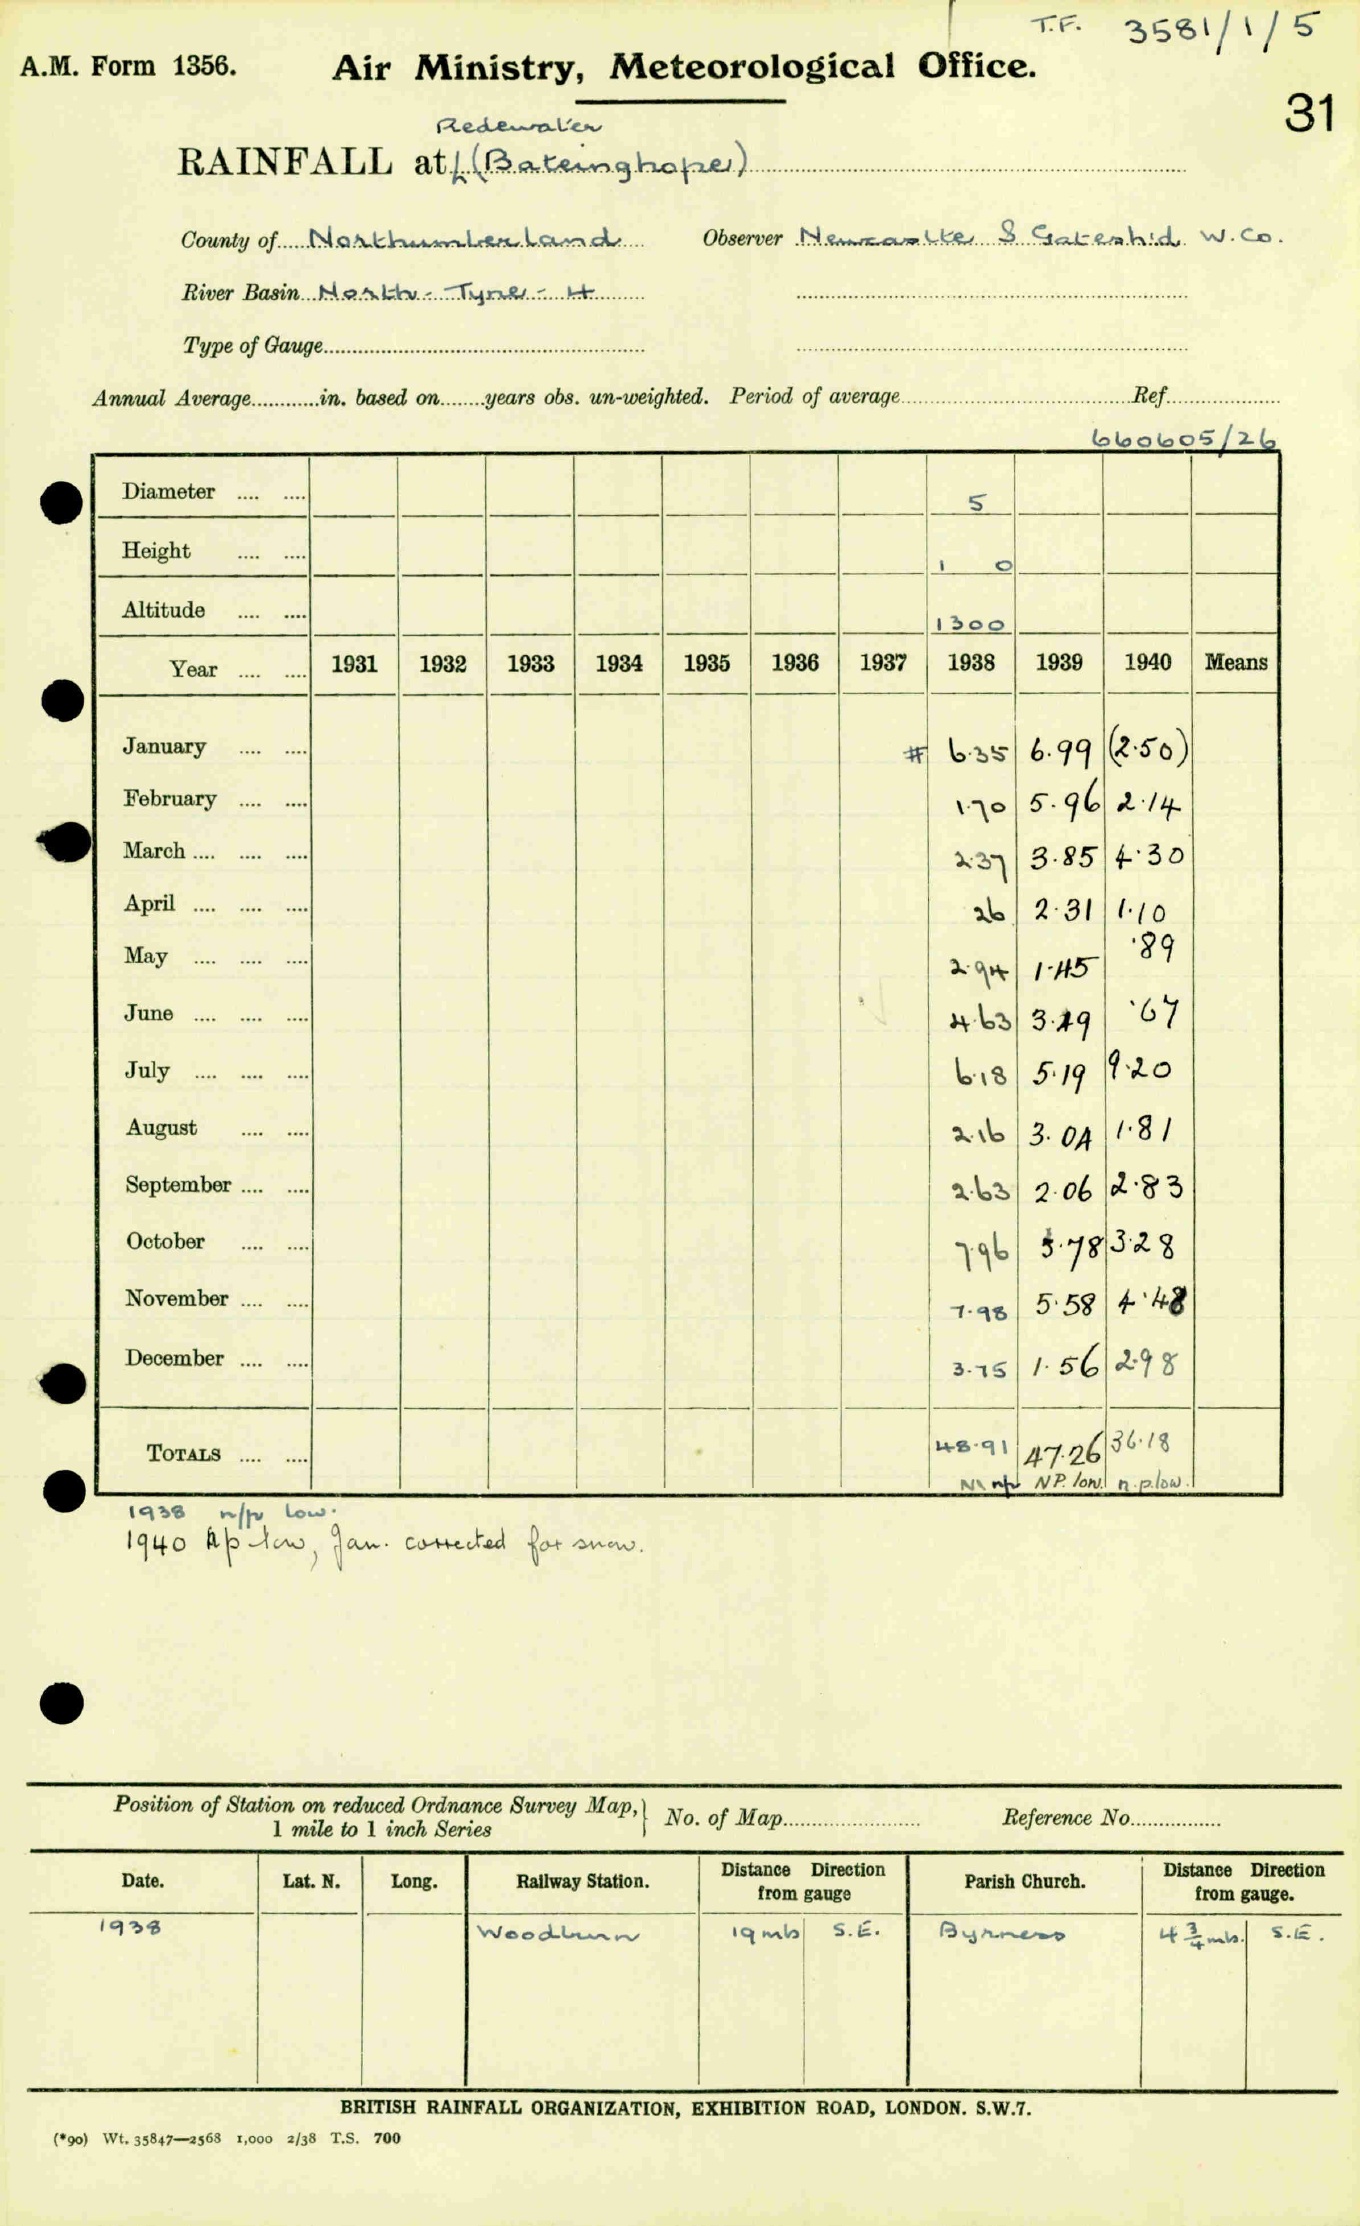 T.F. 3581/1/5
A.M. Form 1356. Air Ministry, Meteorological Office.
31
Redewater
RAINFALL at (Bateinghope)
County of Northumberland Observer Newcastle & Gateshd W. Co.
River Basin North-Tyne-4
Type of Gauge
Annual Average in. based on years obs. un-weighted. Period of average Ref.
660605/26
Diameter 5
Height 1 0
Altitude 1300
Year 1931 1932 1933 1934 1935 1936 1937 1938 1939 1940 Means
January # 6.35 6.99 (2.50)
February 1.70 5.96 2.14
March 2.37 3.85 4.30
April 26 2.31 1.10
May 2.94 1.45 .89
June 4.63 3.49 .67
July 6.18 5.19 9.20
August 2.16 3.04 1.81
September 2.63 2.06 2.83
October 7.96 5.78 3.28
November 7.98 5.58 4.48
December 3.75 1.56 2.98
TOTALS 48.91 47.26 36.18
n/p NP. low. n.p.low.
1938 n/p low.
1940 np low, Jan. corrected for snow.
Position of Station on reduced Ordnance Survey Map, 1 mile to 1 inch Series } No. of Map Reference No.
Date. Lat. N. Long. Railway Station. Distance Direction from gauge Parish Church. Distance Direction from gauge.
1938 Woodburn 19 mls S.E. Byrness 4 3/4 mls. S.E.
BRITISH RAINFALL ORGANIZATION, EXHIBITION ROAD, LONDON. S.W.7.
(*90) Wt. 35847—2568 1,000 2/38 T.S. 700